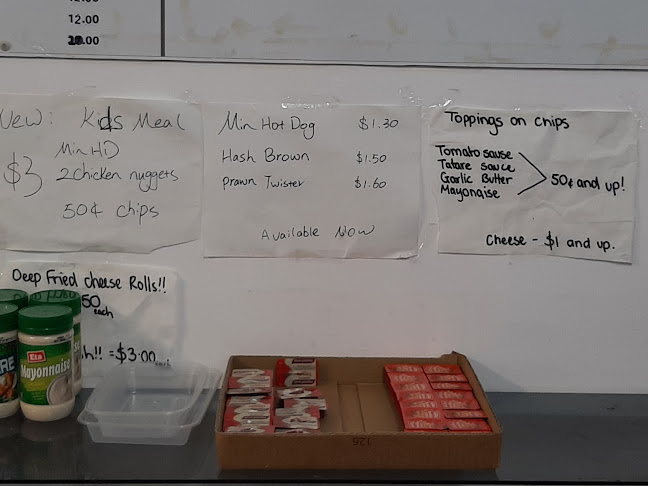 12.00
12.00
.00
New: Kids Meal
$3
Min HD
2 chicken nuggets
50¢ chips
Min Hot Dog $1.30
Hash Brown $1.50
Prawn Twister $1.60
Available Now
Toppings on chips
Tomato sause
Tatare sauce
Garlic Butter
Mayonaise
50¢ and up!
Cheese - $1 and up.
Deep Fried cheese Rolls!!
50 each
h!! = $3.00 each
Eta
Mayonnaise
126